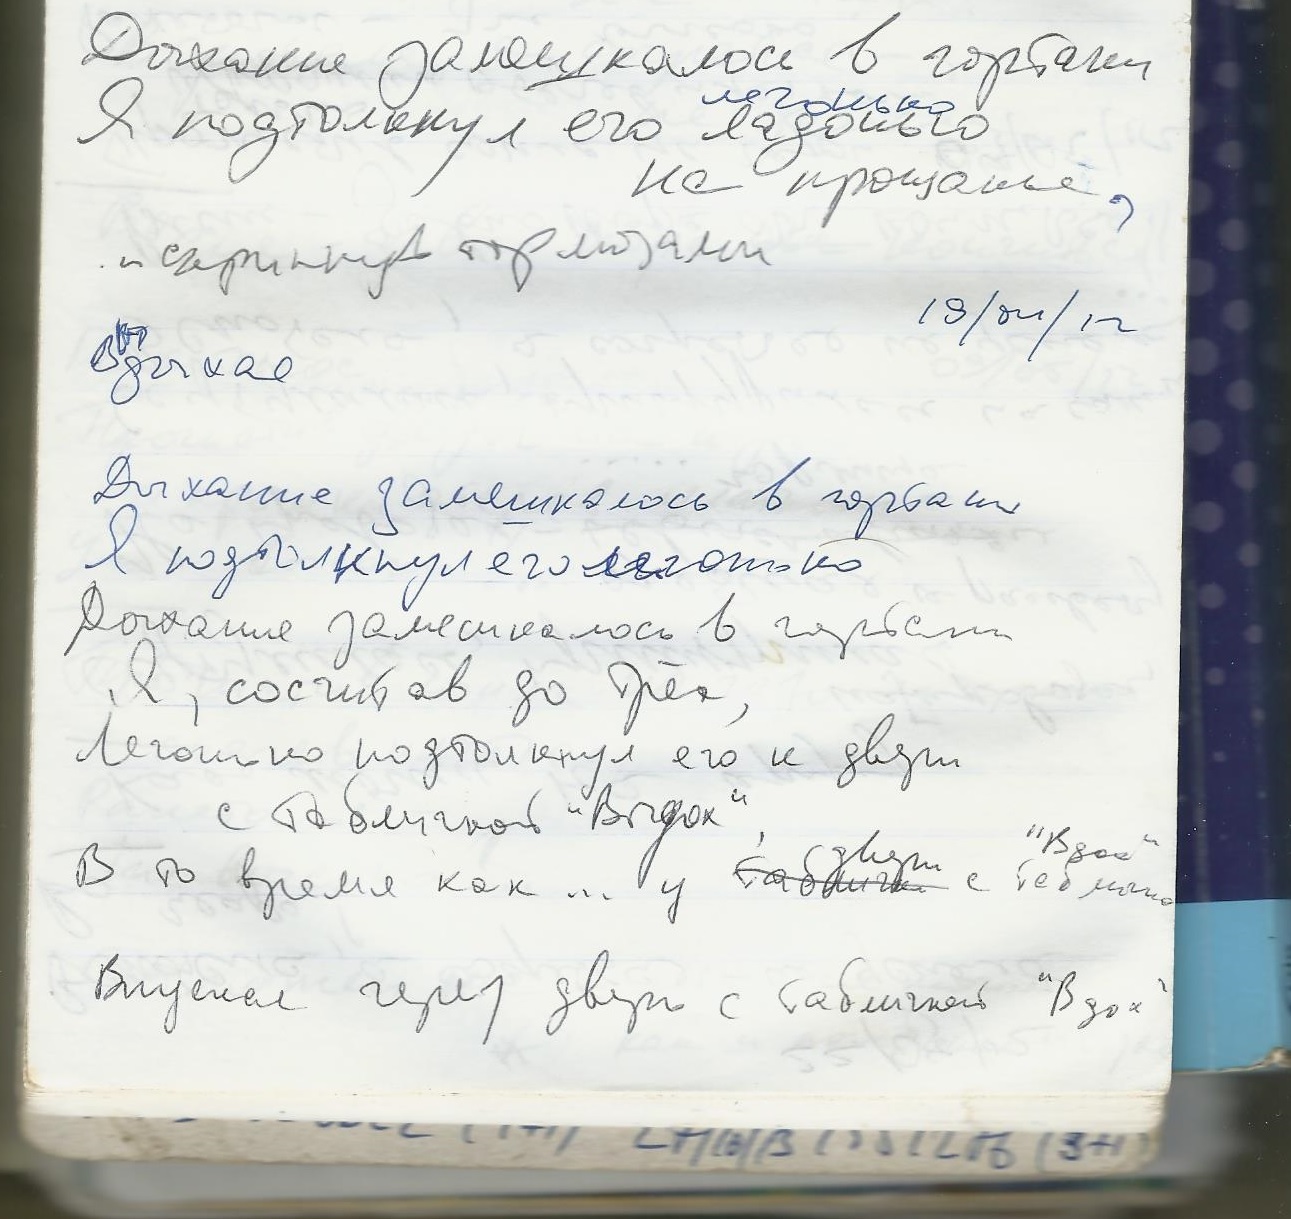 Дыхание замешкалось в гортани
легонько
Я подтолкнул его ладонью
на прощанье,
скрипнув тормозами
Дыхание замешкалось в гортани
Я подтолкнул его легонько
Дыхание замешкалось в гортани
Я, сосчитав до трёх,
Легонько подтолкнул его к двери
с табличкой "Выдох",
двери "Вдох"
В то время как ... у таблички с табличко
Впуская через дверь с табличкой "Вдох"